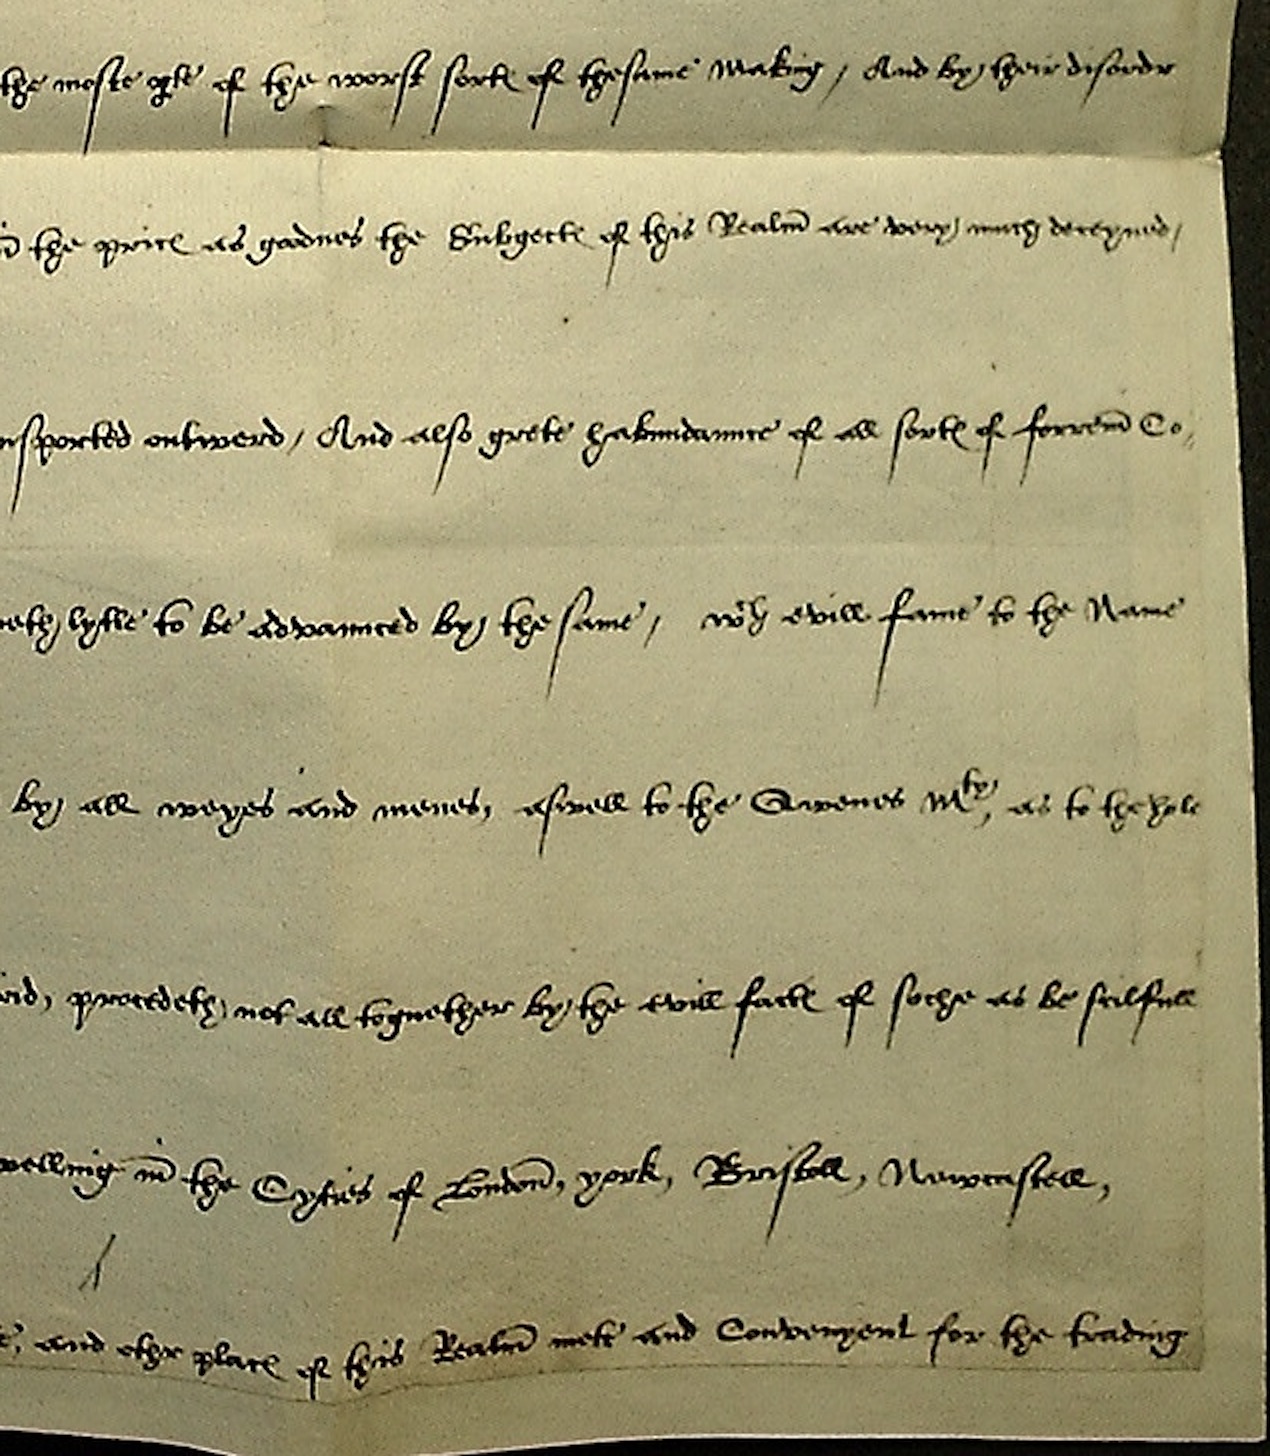 the moste pte of the worst sort of thesame making / And by their disordr
the price as goodnes the Subgects of this Realm are very much deceyued /
nsported outwerd / And also grete habundaunce of all sorts of forrein Co
lytle to be advaunced by the same / wth evill fame to the Name
by all weyes and menes, aswell to the Qwenes Mty, as to the hole
procedeth not all tognether by the evill facts of soche as be scilfull
welling in the Cyties of London, york, Bristoll, Newcastell,
and othr places of this Realm mete and Convenyent for the trading